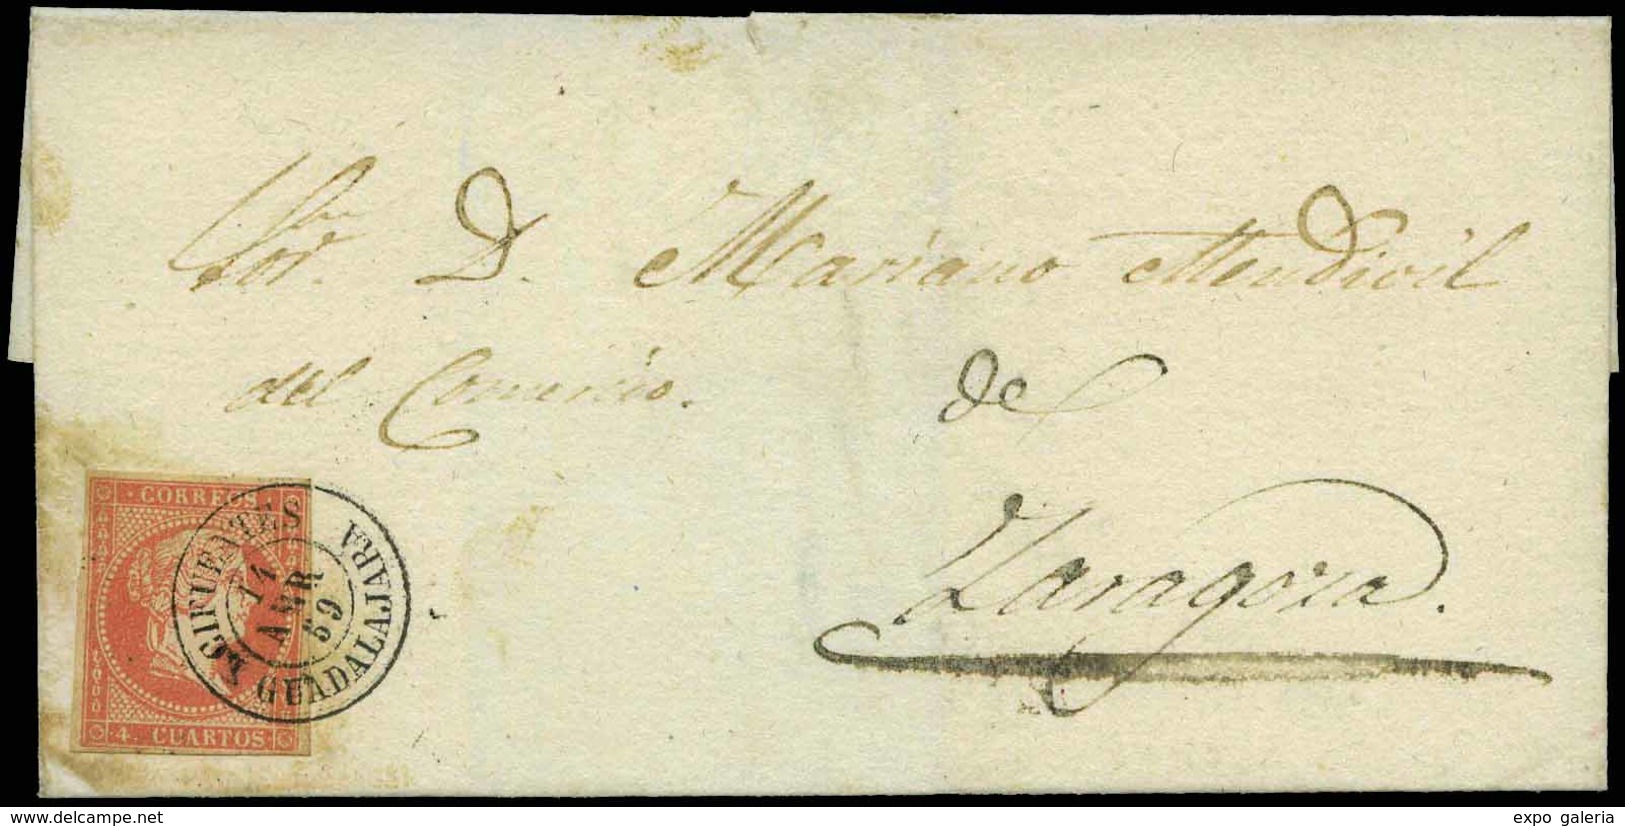 Sor. D. Mariano Mendivil
del Comercio. de
Zaragoza.
CORREOS
CIFUENTES
11
ABR
59
GUADALAJARA
4 CUARTOS
www.delcampe.net
expo galeria